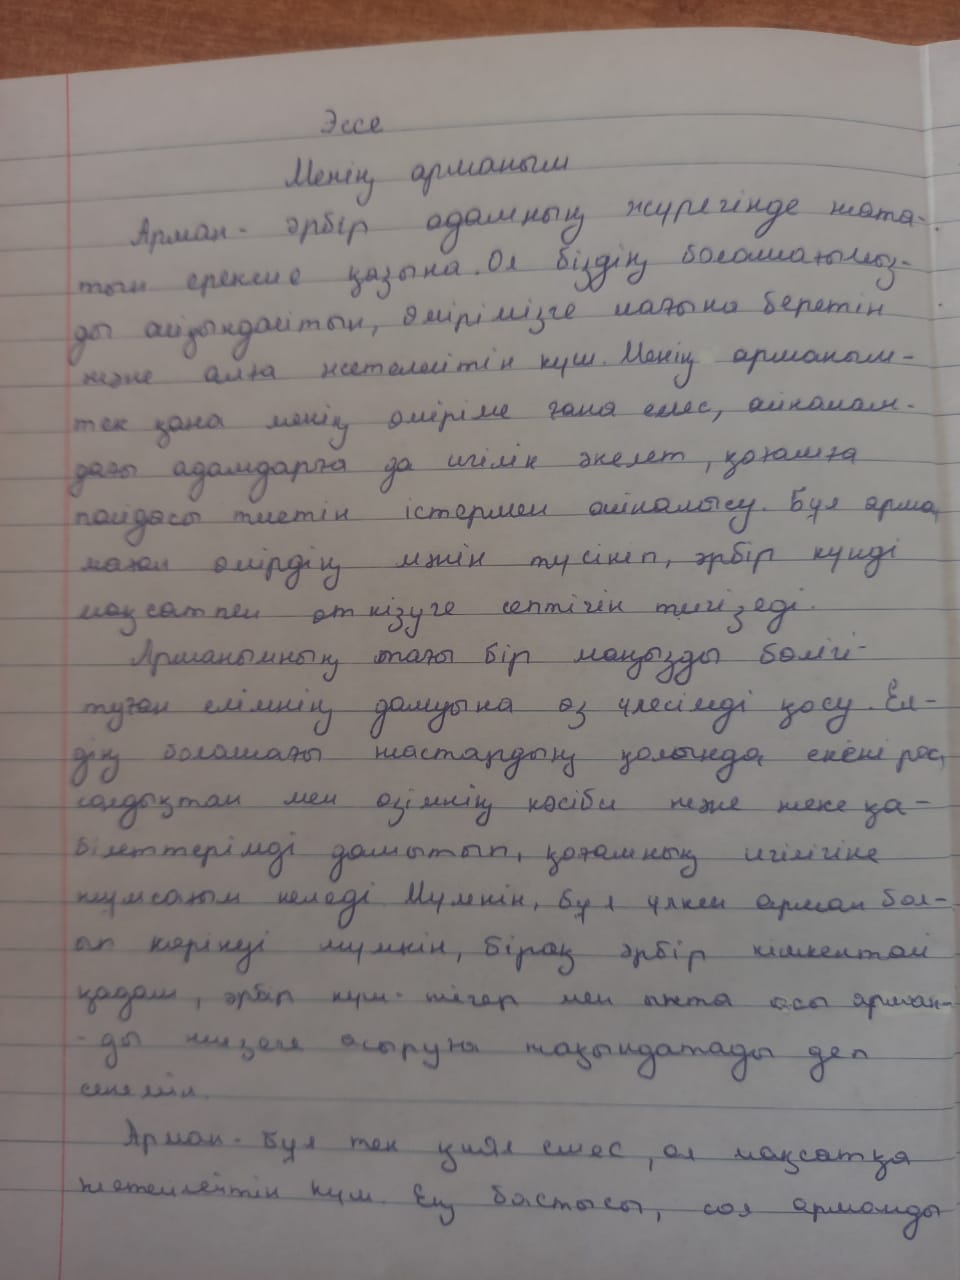 Эссе
Менің арманым
Арман - әрбір адамның жүрегінде жата-
тын ерекше қазына. Ол біздің болашағымыз-
ды айқындайтын, өмірімізге мағына беретін
және алға жетелейтін күш. Менің арманым -
тек қана менің өміріме ғана емес, айналам-
дағы адамдарға да игілік әкелет, қоғамға
пайдасы тиетін істермен айналысу. Бұл арма,
маған өмірдің мәнін түсініп, әрбір күнді
мақсатпен өткізуге септігін тигізеді.
Арманымның тағы бір маңызды бөлігі -
туған елімнің дамуына өз үлесімді қосу. Ел-
дің болашағы жастардың қолында екені рас,
сондықтан мен өзімнің кәсіби және жеке қа-
білеттерімді дамытып, қоғамның игілігіне
жұмсағым келеді. Мүмкін, бұл үлкен арман бол-
ып көрінуі мүмкін, бірақ әрбір кішкентай
қадам, әрбір күш-жігер мен ынта осы арман-
-ды жүзеге асыруға жақындатады деп
сенемін.
Арман - бұл тек қиял емес, ол мақсатқа
жетелейтін күш. Ең бастысы, сол арманды